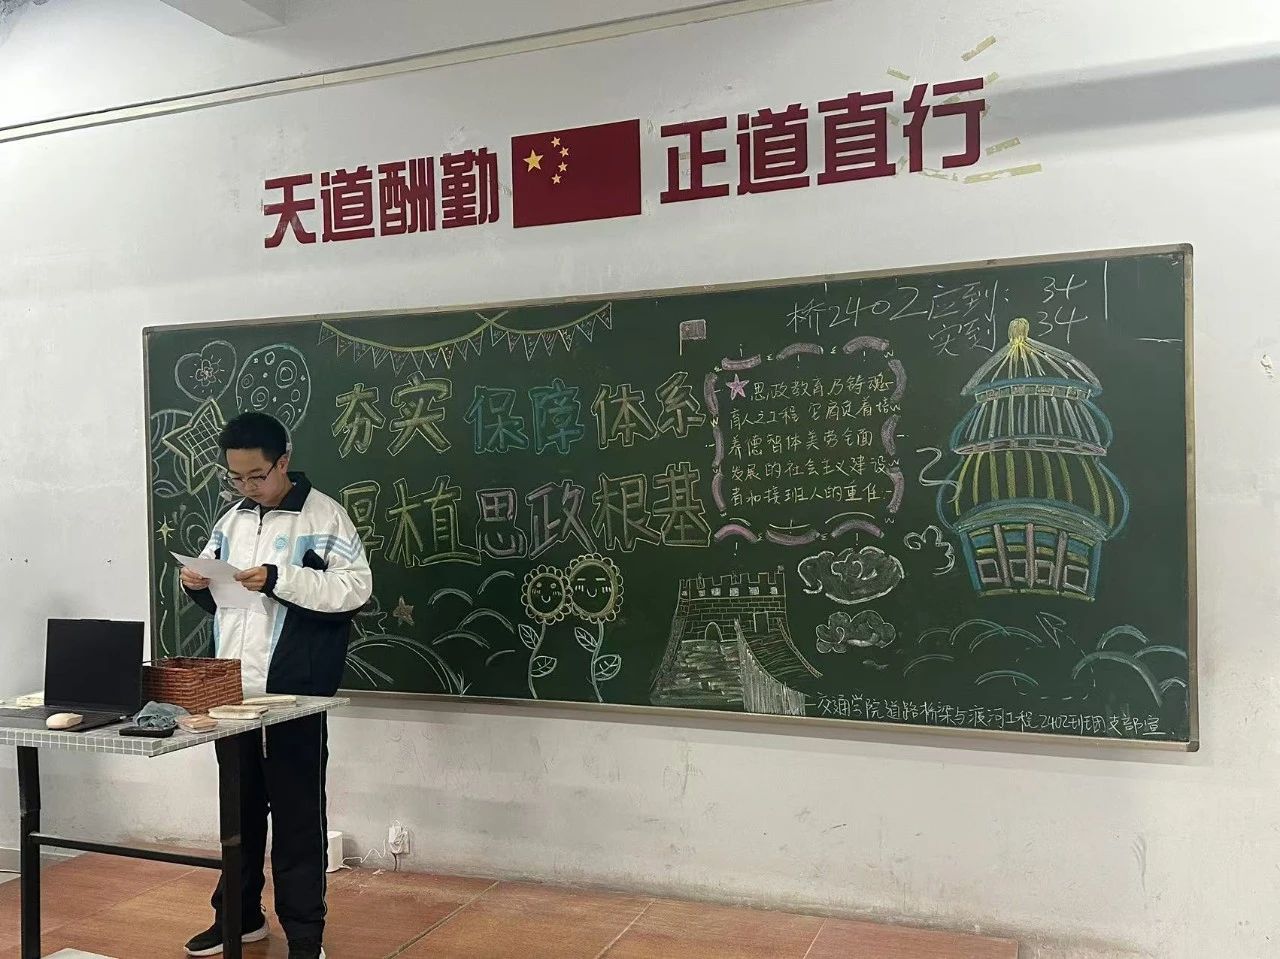 天道酬勤 正道直行
桥2402应到: 34
实到 34
夯实 保障 体系
厚植思政根基
思政教育乃铸魂
育人之工程 它肩负着培
养德智体美劳全面
发展的社会主义建设
者和接班人的重任.
—交通学院道路桥梁与渡河工程2402班团支部宣